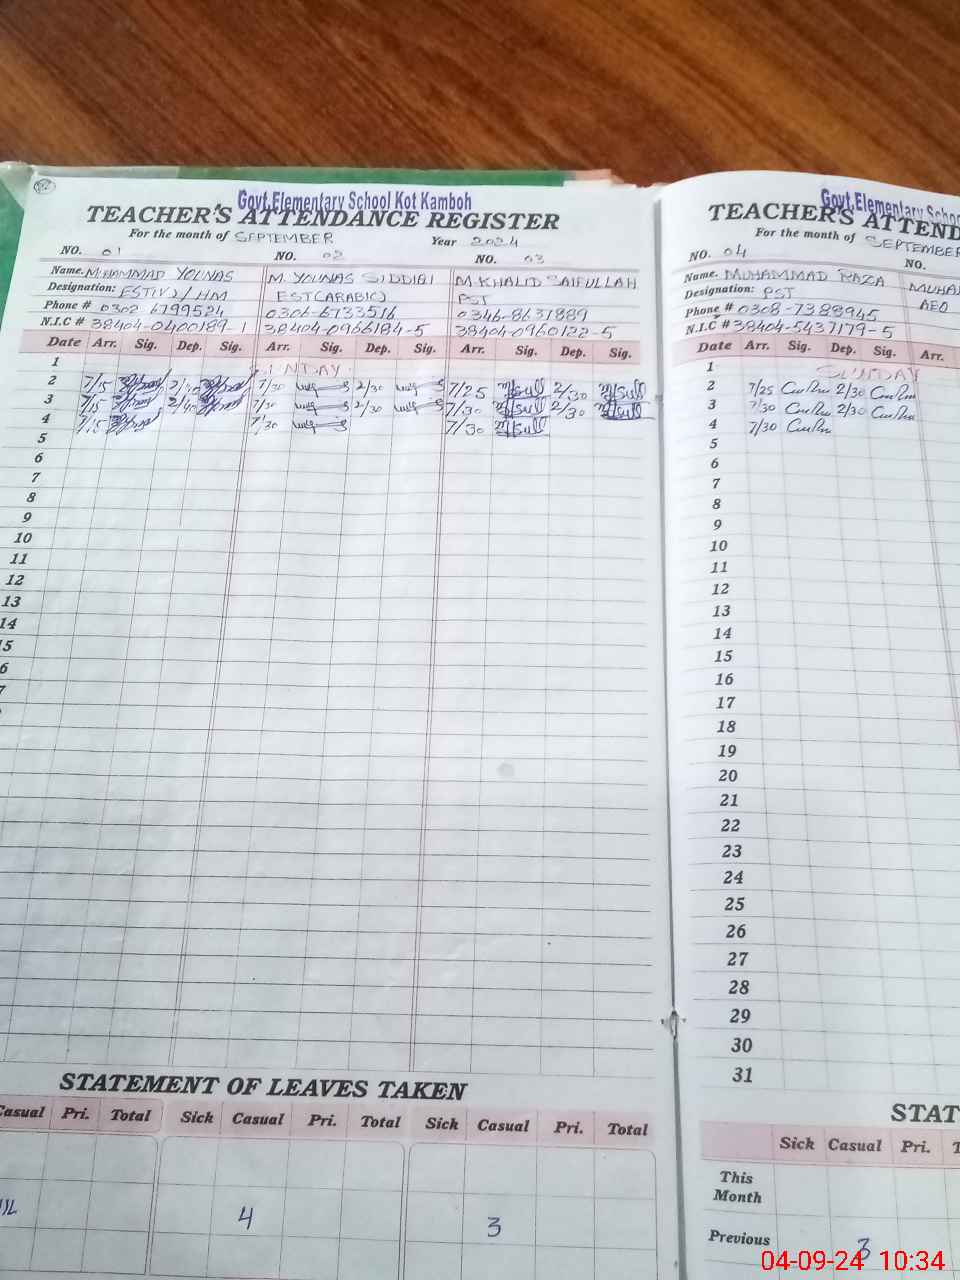 Govt. Elementary School Kot Kamboh
TEACHER'S ATTENDANCE REGISTER
For the month of SEPTEMBER Year 2024
NO. 01 NO. 02 NO. 03
Name. MUHAMMAD YOUNAS M. YOUNAS SIDDIQI M. KHALID SAIFULLAH
Designation: EST(V)/HM EST(ARABIC) PST
Phone # 0302-6799524 0306-6733516 0346-8637889
N.I.C # 38404-0400189-1 38404-0966184-5 38404-0960122-5
Date Arr. Sig. Dep. Sig. Arr. Sig. Dep. Sig. Arr. Sig. Dep. Sig.
1 SUNDAY
2 7/15 7/30 2/30 7/25 2/30
3 7/15 2/40 7/30 2/30 7/30 2/30
4 7/15 7/30 7/30
5
6
7
8
9
10
11
12
13
14
15
6
7
STATEMENT OF LEAVES TAKEN
Casual Pri. Total Sick Casual Pri. Total Sick Casual Pri. Total
4 3
Govt. Elementary Schoo
TEACHER'S ATTEND
For the month of SEPTEMBER
NO. 04 NO.
Name. MUHAMMAD RAZA MUHA
Designation: PST AEO
Phone # 0308-7388945
N.I.C # 38404-5437179-5
Date Arr. Sig. Dep. Sig. Arr.
1 SUNDAY
2 7/25 2/30
3 7/30 2/30
4 7/30
5
6
7
8
9
10
11
12
13
14
15
16
17
18
19
20
21
22
23
24
25
26
27
28
29
30
31
STAT
Sick Casual Pri. T
This
Month
Previous 3
04-09-24 10:34